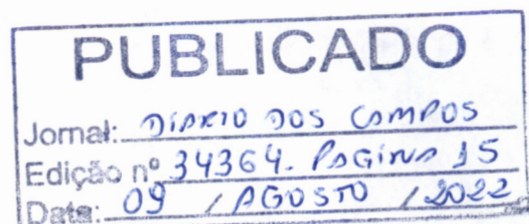 PUBLICADO
Jornal: DIARIO DOS CAMPOS
Edição nº 34364. PAGINA 15
Data: 09 / AGOSTO / 2022